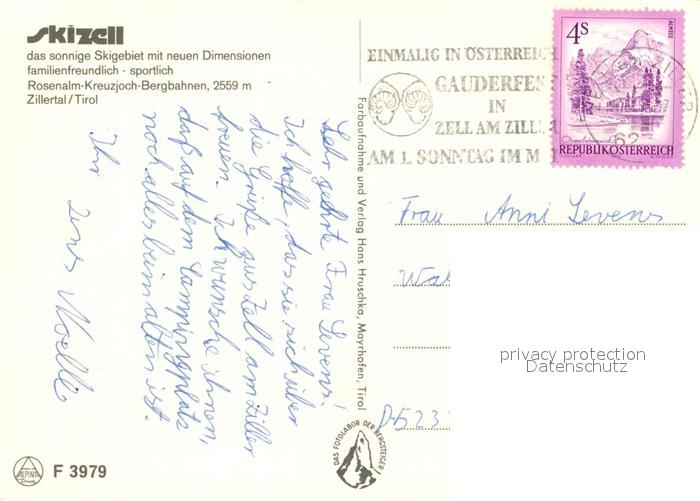 skizell
das sonnige Skigebiet mit neuen Dimensionen
familienfreundlich - sportlich
Rosenalm-Kreuzjoch-Bergbahnen, 2559 m
Zillertal/Tirol
Sehr geehrte Frau Sevens!
Ich hoffe, das sie sich über
die Grüße aus Zell am Ziller
freuen. Ich wünsche ihnen,
daß auf dem Campingplatz
noch alles beim alten ist.
Ihr
Jens Moelle
F 3979
ALPINA
Druck
Farbaufnahme und Verlag Hans Hruschka, Mayrhofen, Tirol
DAS FOTOLABOR DER BERGSTEIGER
EINMALIG IN ÖSTERREICH
GAUDERFES
IN
ZELL AM ZILL
AM 1. SONNTAG IM M
4S
ALMSEE
REPUBLIK ÖSTERREICH
ZILLER
62
Frau Anni Sevens
Wal
D-523
privacy protection
Datenschutz